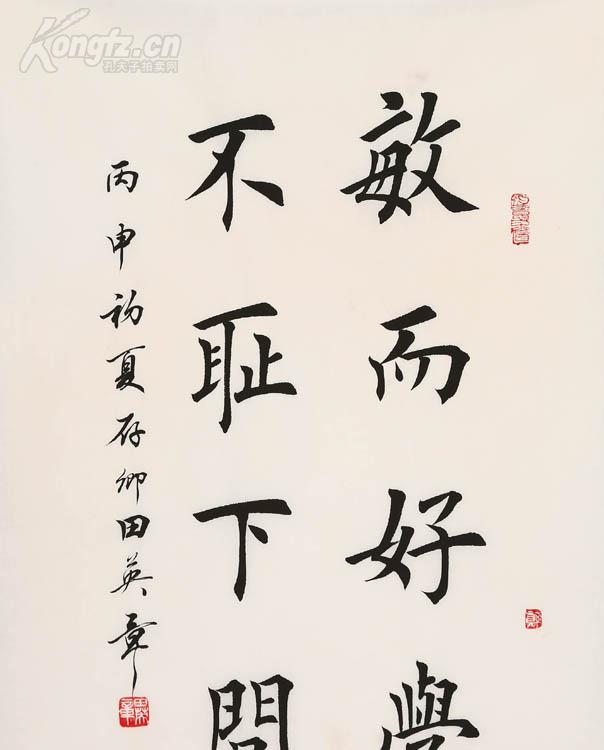 敏而好學
不耻下問
丙申初夏存卿田英章
Kongfz.cn
孔夫子拍卖网